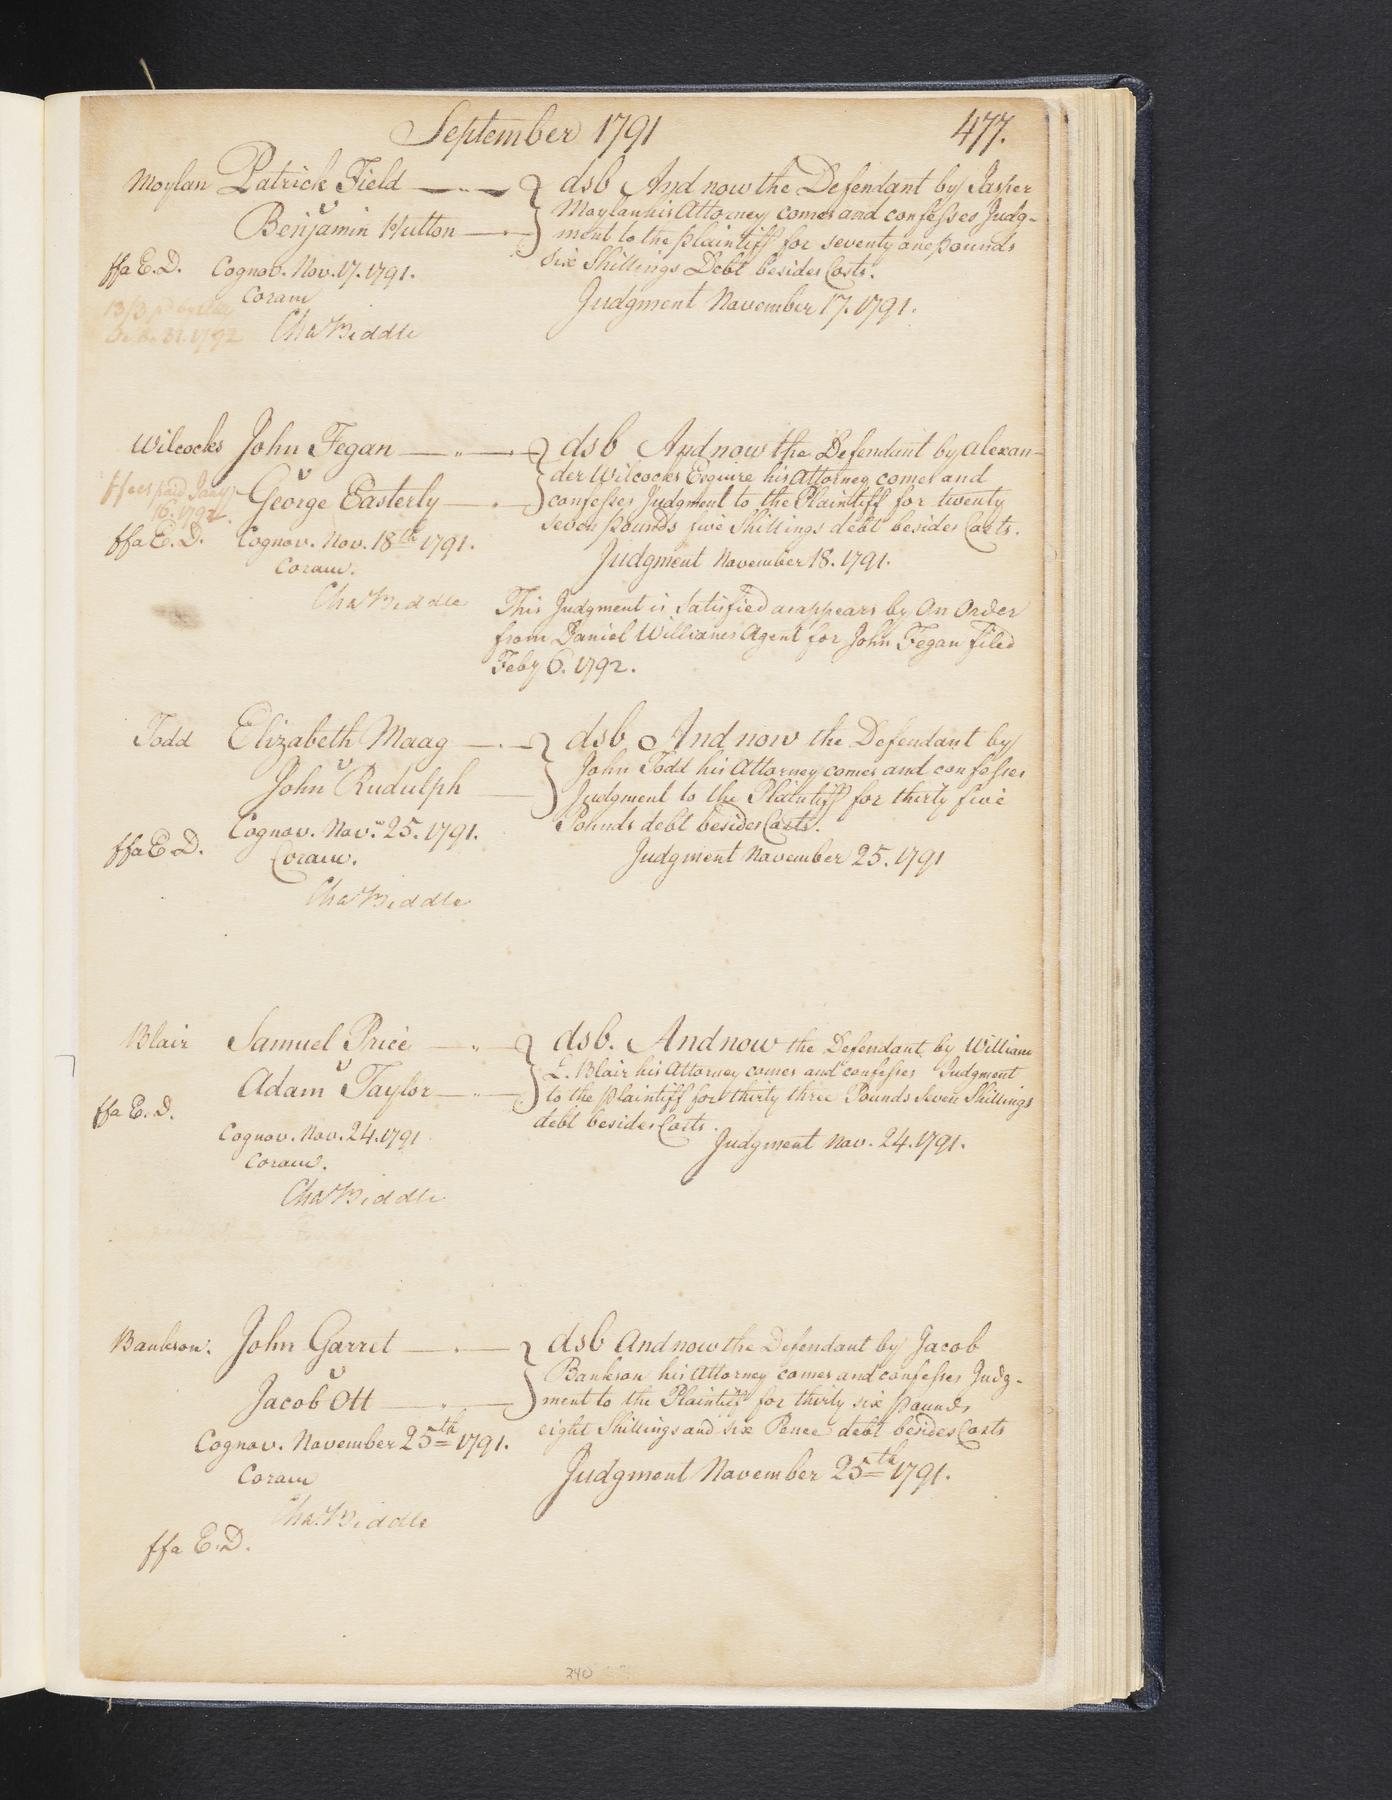 September 1791
477.
Moylan Patrick Field
v
Benjamin Hutton
ffa E.D. Cognov. Nov. 17. 1791.
Coram
Cha Biddle
13/3 pd
Decr. 31. 1792
dsb And now the Defendant by Jasper
Moylan his Attorney comes and confesses Judg-
ment to the plaintiff for seventy one pounds
six Shillings Debt besides Costs.
Judgment November 17. 1791.
Wilcocks John Fegan
v
George Easterly
ffees paid Jany
16. 1792.
ffa E.D. Cognov. Nov. 18th 1791.
Coram.
Cha Biddle
dsb And now the Defendant by Alexan-
der Wilcocks Esquire his Attorney comes and
confesses Judgment to the Plaintiff for twenty
seven pounds five Shillings debt besides Costs.
Judgment November 18. 1791.
This Judgment is Satisfied as appears by an Order
from Daniel Williams Agent for John Fegan filed
Feby 6. 1792.
Todd Elizabeth Maag
v
John Rudulph
Cognov. Nov. 25. 1791.
ffa E.D. Coram.
Cha Biddle
dsb And now the Defendant by
John Todd his Attorney comes and confesses
Judgment to the Plaintiff for thirty five
Pounds debt besides Costs.
Judgment November 25. 1791
Blair Samuel Price
v
Adam Taylor
ffa E.D.
Cognov. Nov. 24. 1791
Coram.
Cha Biddle
dsb. And now the Defendant by William
L. Blair his Attorney comes and confesses Judgment
to the plaintiff for thirty three Pounds Seven Shillings
debt besides Costs.
Judgment Nov. 24. 1791.
Bankson. John Garret
v
Jacob Ott
Cognov. November 25th 1791.
Coram
Cha. Biddle
ffa E.D.
dsb And now the Defendant by Jacob
Bankson his Attorney comes and confesses Judg-
ment to the Plaintiff for thirty six pounds
eight Shillings and six Pence debt besides Costs
Judgment November 25th 1791.
240